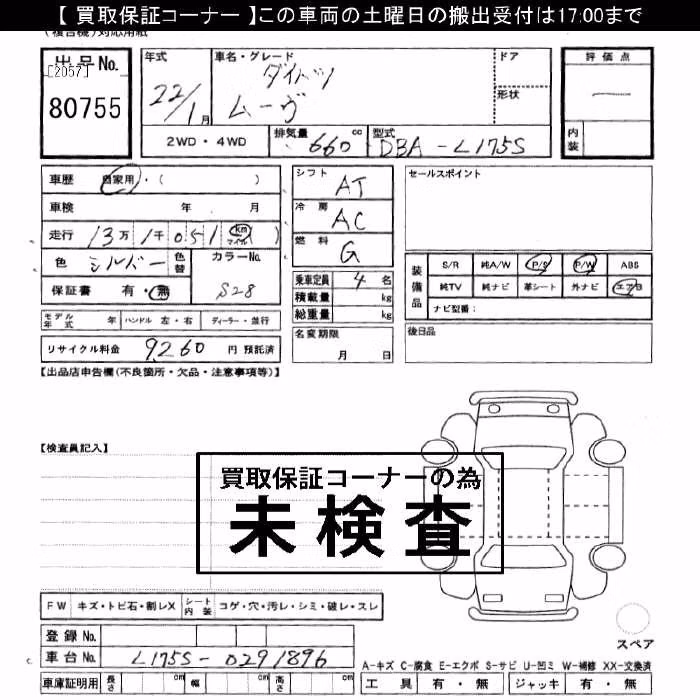 【 買取保証コーナー 】この車両の土曜日の搬出受付は17:00まで
(複合機)対応用紙
出品No.
[2057]
80755
年式
22/1月
車名・グレード
ダイハツ
ムーヴ
ドア
形状
評価点
―
内装
2WD・4WD
排気量 660 cc
型式 DBA-L175S
車歴 自家用・( )
車検 年 月
走行 13万 1千 051 km マイル ( )
色 シルバー 色替 カラーNo.
保証書 有・無 S28
モデル年式 年 ハンドル 左・右 ディーラー・並行
リサイクル料金 9260 円 預託済
シフト AT
冷房 AC
燃料 G
乗車定員 4 名
積載量 kg
総重量 kg
名変期限
月 日
セールスポイント
装備品
S/R 純A/W P/S P/W ABS
純TV 純ナビ 革シート 外ナビ エアB
ナビ型番:
後日品
【出品店申告欄(不良箇所・欠品・注意事項等)】
【検査員記入】
買取保証コーナーの為
未検査
FW キズ・トビ石・割レX シート内装 コゲ・穴・汚レ・シミ・破レ・スレ
登録No.
車台No. L175S-0291896
車庫証明用 長さ cm 幅 cm 高さ cm
スペア
A-キズ C-腐食 E-エクボ S-サビ U-凹ミ W-補修 XX-交換済
工具 有・無 ジャッキ 有・無